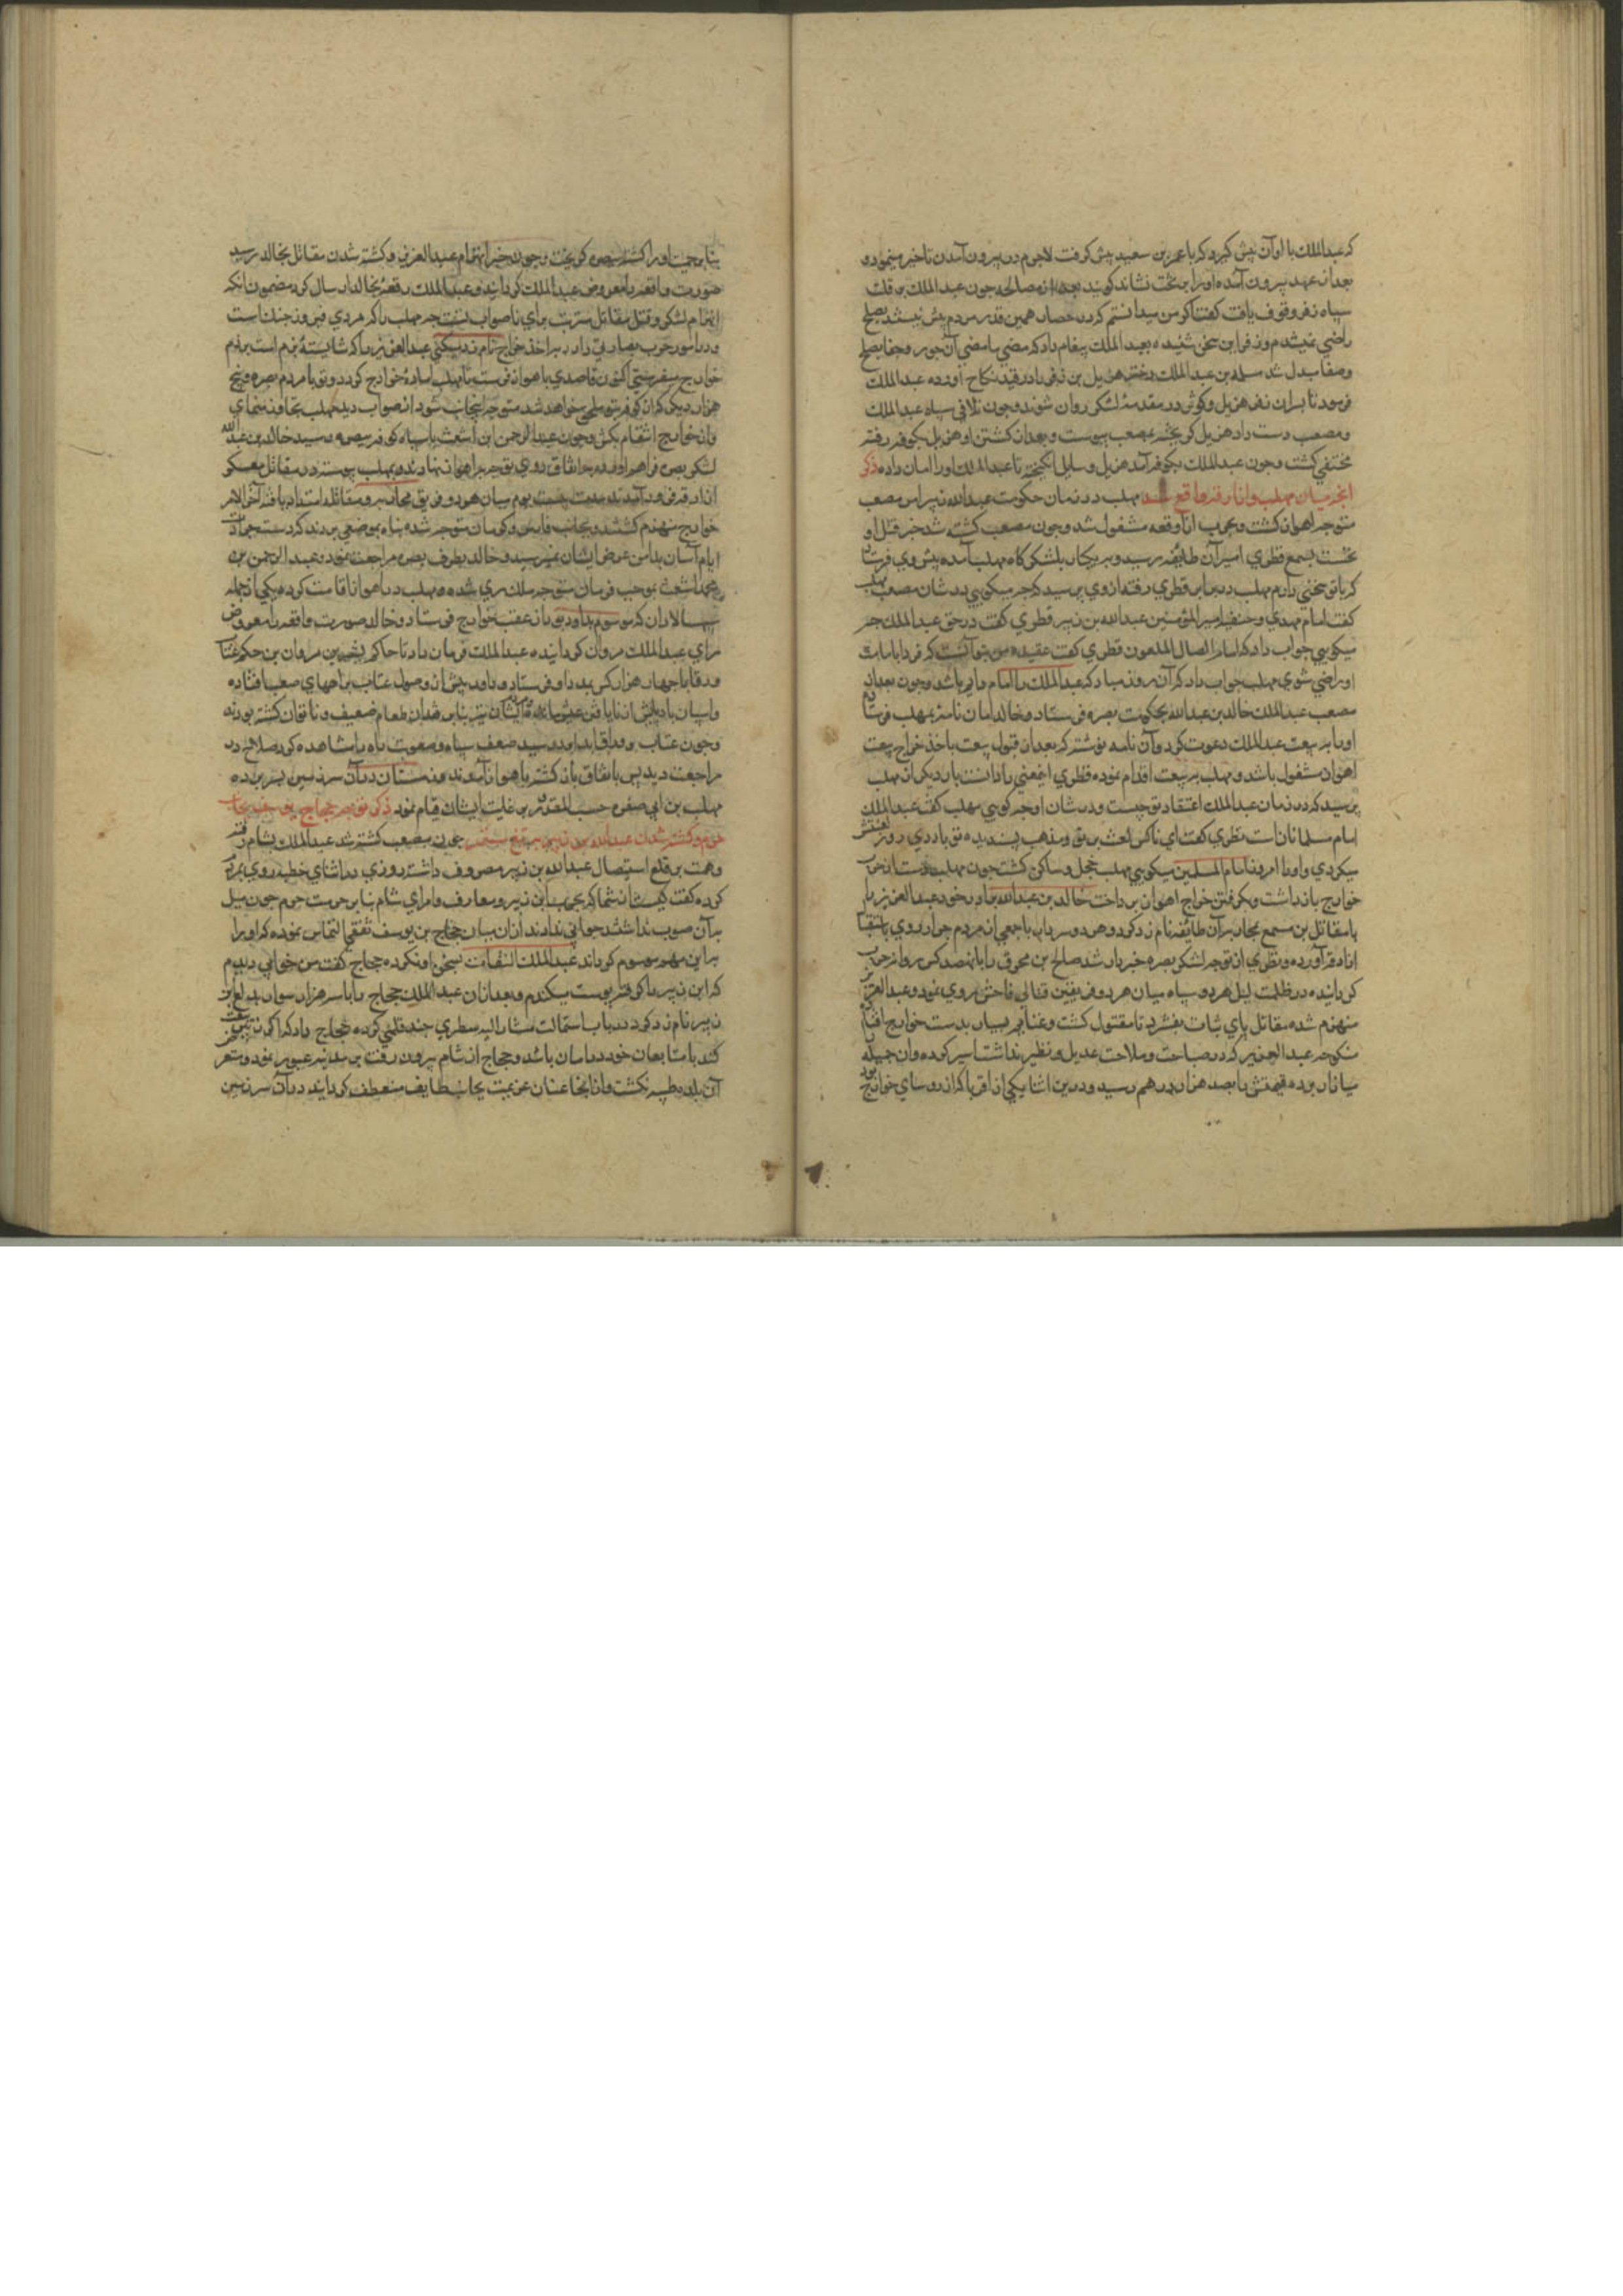 که عبدالملک با او آن پیش گیرد که با عمرو بن سعید پیش گرفت لاجرم در بیرون آمدن تاخیر مینمود و
بعد از عهد بیرون آمده او را بر تخت نشاند کویند بعد از مصالحه جون عبد الملک بر قلت
سپاه زفر وقوف یافت کفت اکر من میدانستم که در حصار همین قدر مردم بیش نیستند بصلح
راضی نمیشدم و زفر این سخن شنیده بعبد الملک پیغام داد که مضی ما مضی آن جور و جفا بصلح
وصفا مبدل شد مسلمه بن عبد الملک دختر هزیل بن زفر را در قید نکاح اورده عبد الملک
فرمود تا پسران زفر هزیل و کوثر در مقدمه لشکر روان شوند و جون تلاقی سپاه عبد الملک
و مصعب دست داد هزیل کریخته بمصعب پیوست و بعد از کشتن او هزیل بکوفه رفته
مختفی کشت و جون عبد الملک بکوفه آمد هزیل وسایل انکیخته تا عبد الملک او را امان داده ذکر
انچه میان مهلب و ازارقه واقع شد مهلب در زمان حکومت عبدالله زبیر امر مصعب
متوجه اهواز کشت و بحرب ازارقه مشغول شد و جون مصعب کشته شد خبر قتل او
نخست بسمع قطری امیر آن طایفه رسید و بر یکجانب لشکرکاه مهلب آمده پیش وی فرستاد
که با تو سخنی دارم مهلب در برابر قطری رفته از وی پرسید که چه میکویی در شان مصعب مهلب
کفت امام مهدی و خلیفه امیر المؤمنین عبدالله بن زبیر قطری کفت در حق عبد الملک چه
میکویی جواب داد که امام الضال الملعون قطری کفت عقیده من بتو آنست که فردا بامامت
او راضی شوی مهلب جواب داد که آن روز مباد که عبد الملک را امام دانم باشد و جون بعد از
مصعب عبد الملک خالد بن عبدالله بحکومت بصره فرستاد و خالد امان نامه بمهلب فرستاد
او را به بیعت عبد الملک دعوت کرد و آن نامه نوشته که بعد از قبول بیعت باخذ خراج بیعت
اهواز مشغول باشد و مهلب بر بیعت اقدام نموده قطری اینمعنی را دانست بار دیکر از مهلب
پرسید که در زمان عبد الملک اعتقاد تو چیست و در شان او چه کویی مهلب کفت عبد الملک
امام مسلمانان است قطری کفت ای ناکس لعنت بر تو و مذهب پسندیده تو باد دی روز لعنتش
میکردی و او را امروز امام المسلمین میکویی مهلب خجل و ساکن کشت جون مهلب دست از حرب
خوارج باز داشت و بکرفتن خراج اهواز پرداخت خالد بن عبدالله برادر خود عبد العزیز را
با مقاتل بن مسمع بمحاربه آن طائفه نام زد کرد و هر دو سردار با جمعی از مردم جرار روی باستقبال
ازارقه آورده و قطری از توجه لشکر بصره خبردار شد صالح بن محرق را با نهصد کس روانه حرب
کردانیده در ظلمت لیل هر دو سپاه میان هر دو فریقین قتالی فاحش روی نمود و عبد العزیز
منهزم شده مقاتل پای ثبات بفشرد تا مقتول کشت و غنائم بسیار بدست خوارج افتاد
منکوحه عبد العزیز که در صباحت و ملاحت عدیل و نظیر نداشت اسیر کرده و ان جمیله
میانار برده قیمتش با بصد هزار درهم رسید و در بن اثنا یکی از اقربا که از روسای خوارج بود
بنا بر حمیت او را کشته ببصره کریخت و جون خبر انهزام عبد العزیز و کشته شدن مقاتل بخالد رسید
صورت واقعه را معروض عبد الملک کردانید و عبد الملک رقعه بخالد ارسال کرد مضمون انکه
انهزام لشکر و قتل مقاتل مترتب برای ناصواب تست چه مهلب را که مردی فیروز جنک است
و در امور حرب بصارتی دارد بر اخذ خراج نام زد میکنی عبد العزیز را که شایسته بزم است برزم
خوارج میفرستی اکنون قاصدی باهواز فرست تا مهلب اماده خوارج کردد و تو با مردم بصره و پنج
هزار دیکر که از کوفه بتو ملحق خواهد شد متوجه اینجانب شو و از صواب دید مهلب تجاوز منمای
و از خوارج انتقام بکش و جون عبد الرحمن ابن اشعث با سپاه کوفه ببصره رسید خالد بن عبد الله
لشکر بصره فراهم اورده باتفاق روی توجه باهواز نهادند و بمهلب پیوسته در مقابل معسکر
ازارقه فرود آمدند مدت بیست یوم میان هر دو فریق محاربه و مقاتله امتداد یافته آخر الامر
خوارج منهزم کشتند و بجانب فارس و کرمان متوجه شده پناه بموضعی بردند که دست حوادث
ایام آسان بدامن عرض ایشان نمیرسید و خالد بطرف بصره مراجعت نمود و عبد الرحمن بن
محمد اشعث بموجب فرمان متوجه ملک ری شده و مهلب در اهواز اقامت کرده یکی از جمله
سپهسالاران که موسوم بداود بود از عقب خوارج فرستاد و خالد صورت واقعه را معروض
رای عبد الملک مروان کردانیده عبد الملک فرمان داد تا حاکم بشر بن مروان بن حکم عتاب
ورقا با جهار هزار کس بمدد او فرستاد و داود پیش از وصول عتاب براههای صعب افتاده
و اسپان یارانش از نایافتن علف مانده و ایشان نیز بنابر فقدان طعام ضعیف و ناتوان کشته بودند
و جون عتاب ورقا بداود رسید ضعف سپاه و صعوبت راه را مشاهده کرد صلاح در
مراجعت دید پس باتفاق بازکشته باهواز آمدند و زمستان در آن سرزمین بسر برده
مهلب بن ابی صفره حسب المقدور بر غلبت ایشان قیام نمود ذکر توجه حجاج یوسف بجانب
حرم و کشته شدن عبدالله بن زبیر بتیغ ستم جون مصعب کشته شد عبد الملک بشام رفته
و همت بر قلع استیصال عبدالله بن زبیر مصروف داشته روزی در اثنای خطبه روی بمردم
کرده کفت کیست از شما که بحرب ابن زبیر و معارف و امرای شام بنا بر حرمت حرم جون میل
بدان صوب نداشتند جوابی ندادند از ان میان حجاج بن یوسف ثقفی التماس نموده که او را
بر این مهم موسوم کرداند عبد الملک التفات بسخن او نکرده حجاج کفت من خوابی دیدم
که ابن زبیر را کرفته پوست میکندم و بعد از ان عبد الملک حجاج را با سه هزار سوار بدفع ابن
زبیر نام زد کرد در باب استمالت مشار الیه سطری چند قلمی کرده بحجاج داد که اکر ابن زبیر بیعت
کند با متابعان خود در امان باشد و حجاج از شام بیرون رفت بر مدینه عبور نمود و متعرض
آن بلده طیبه نکشت و از انجا عنان عزیمت بجانب طایف منعطف کردانید در آن سرزمین